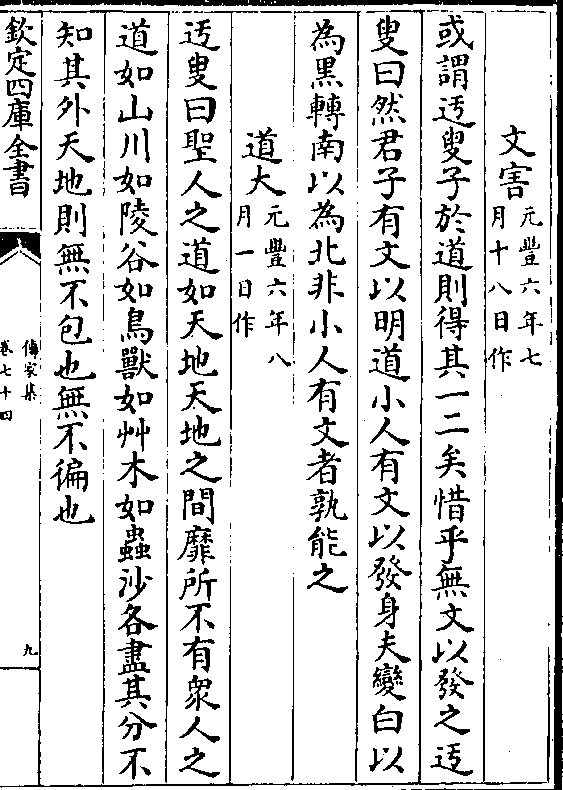 文害元豐六年七
月十八日作
或謂迃叟子於道則得其一二矣惜乎無文以發之迃
叟曰然君子有文以明道小人有文以發身夫變白以
為黑轉南以為北非小人有文者孰能之
道大元豐六年八
月一日作
迃叟曰聖人之道如天地天地之間靡所不有衆人之
道如山川如陵谷如鳥獸如艸木如蟲沙各盡其分不
知其外天地則無不包也無不徧也
欽定四庫全書
傳家集
卷七十四
九